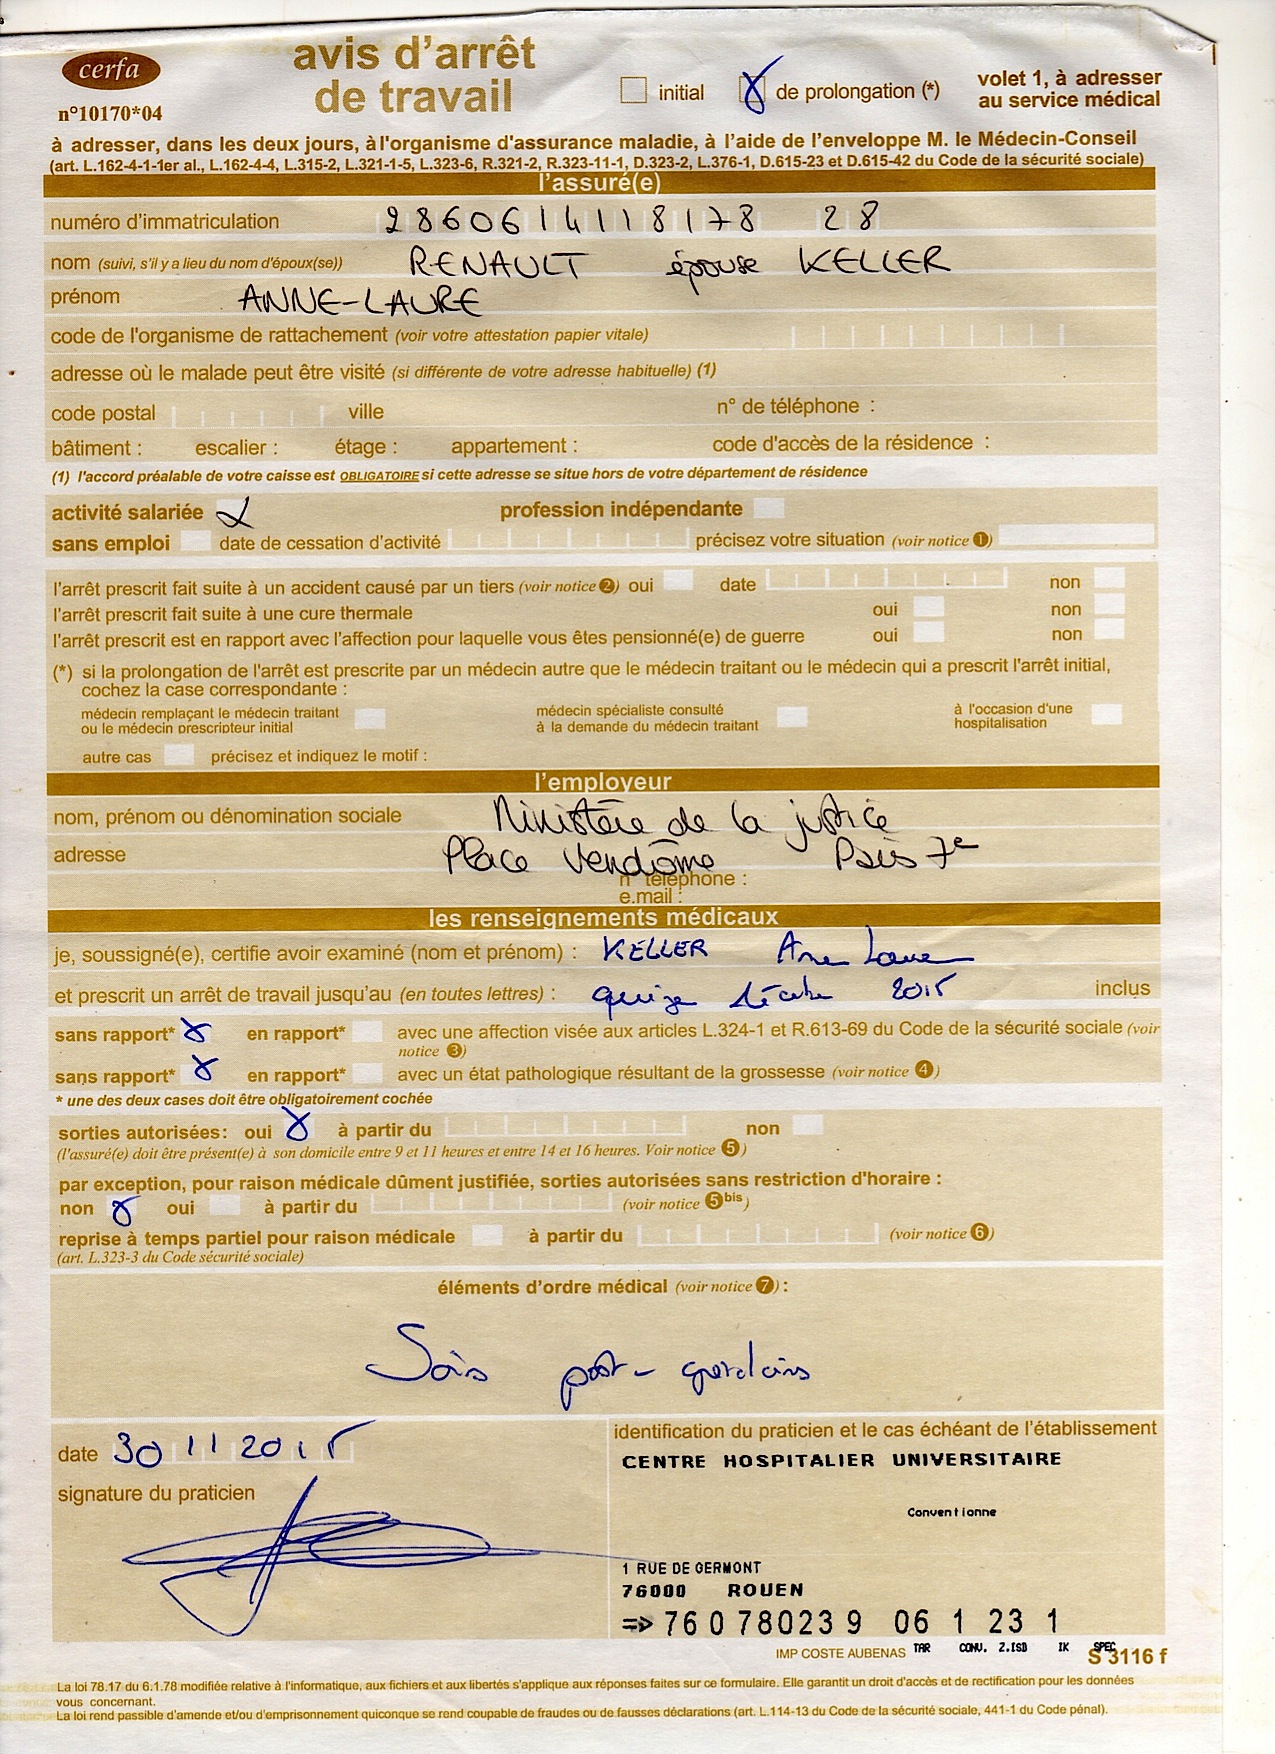 cerfa
n°10170*04
avis d'arrêt
de travail
initial
de prolongation (*)
volet 1, à adresser
au service médical
à adresser, dans les deux jours, à l'organisme d'assurance maladie, à l'aide de l'enveloppe M. le Médecin-Conseil
(art. L.162-4-1-1er al., L.162-4-4, L.315-2, L.321-1-5, L.323-6, R.321-2, R.323-11-1, D.323-2, L.376-1, D.615-23 et D.615-42 du Code de la sécurité sociale)
l'assuré(e)
numéro d'immatriculation 2860614118178 28
nom (suivi, s'il y a lieu du nom d'époux(se)) RENAULT épouse KELLER
prénom ANNE-LAURE
code de l'organisme de rattachement (voir votre attestation papier vitale)
adresse où le malade peut être visité (si différente de votre adresse habituelle) (1)
code postal ville n° de téléphone :
bâtiment : escalier : étage : appartement : code d'accès de la résidence :
(1) l'accord préalable de votre caisse est OBLIGATOIRE si cette adresse se situe hors de votre département de résidence
activité salariée profession indépendante
sans emploi date de cessation d'activité précisez votre situation (voir notice 1)
l'arrêt prescrit fait suite à un accident causé par un tiers (voir notice 2) oui date non
l'arrêt prescrit fait suite à une cure thermale oui non
l'arrêt prescrit est en rapport avec l'affection pour laquelle vous êtes pensionné(e) de guerre oui non
(*) si la prolongation de l'arrêt est prescrite par un médecin autre que le médecin traitant ou le médecin qui a prescrit l'arrêt initial,
cochez la case correspondante :
médecin remplaçant le médecin traitant
ou le médecin prescripteur initial
médecin spécialiste consulté
à la demande du médecin traitant
à l'occasion d'une
hospitalisation
autre cas précisez et indiquez le motif :
l'employeur
nom, prénom ou dénomination sociale Ministère de la justice
adresse Place Vendôme Paris 7e
n° téléphone :
e.mail :
les renseignements médicaux
je, soussigné(e), certifie avoir examiné (nom et prénom) : KELLER Anne Laure
et prescrit un arrêt de travail jusqu'au (en toutes lettres) : quinze décembre 2015 inclus
sans rapport* en rapport* avec une affection visée aux articles L.324-1 et R.613-69 du Code de la sécurité sociale (voir
notice 3)
sans rapport* en rapport* avec un état pathologique résultant de la grossesse (voir notice 4)
* une des deux cases doit être obligatoirement cochée
sorties autorisées: oui à partir du non
(l'assuré(e) doit être présent(e) à son domicile entre 9 et 11 heures et entre 14 et 16 heures. Voir notice 5)
par exception, pour raison médicale dûment justifiée, sorties autorisées sans restriction d'horaire :
non oui à partir du (voir notice 5bis)
reprise à temps partiel pour raison médicale à partir du (voir notice 6)
(art. L.323-3 du Code sécurité sociale)
éléments d'ordre médical (voir notice 7) :
Soins post-
date 30 11 2015
signature du praticien
identification du praticien et le cas échéant de l'établissement
CENTRE HOSPITALIER UNIVERSITAIRE
Conventionne
1 RUE DE GERMONT
76000 ROUEN
=> 76 0 780239 06 1 23 1
IMP COSTE AUBENAS TAR CONV. Z.ISD IK SPEC
S 3116 f
La loi 78.17 du 6.1.78 modifiée relative à l'informatique, aux fichiers et aux libertés s'applique aux réponses faites sur ce formulaire. Elle garantit un droit d'accès et de rectification pour les données
vous concernant.
La loi rend passible d'amende et/ou d'emprisonnement quiconque se rend coupable de fraudes ou de fausses déclarations (art. L.114-13 du Code de la sécurité sociale, 441-1 du Code pénal).